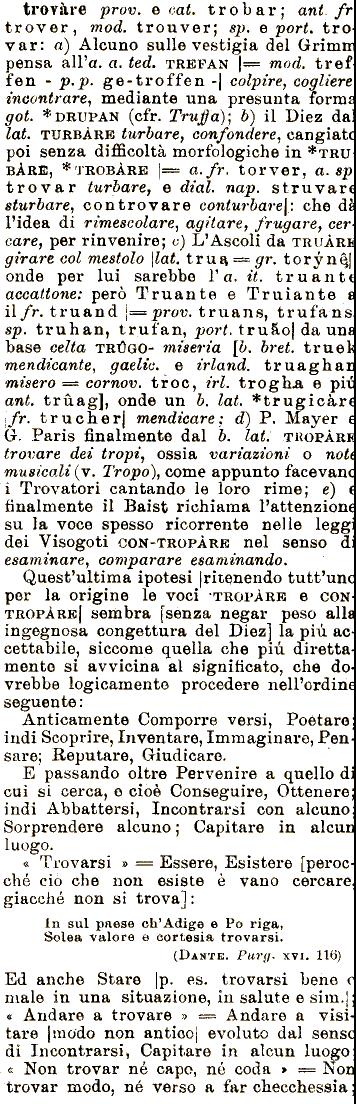 trovàre prov. e cat. trobar; ant. fr
trover, mod. trouver; sp. e port. tro-
var: a) Alcuno sulle vestigia del Grimm
pensa all'a. a. ted. TREFAN [= mod. tref-
fen - p. p. ge-troffen -] colpire, cogliere
incontrare, mediante una presunta forma
got. *DRUPAN (cfr. Truffa); b) il Diez dal
lat. TURBÀRE turbare, confondere, cangiato
poi senza difficoltà morfologiche in *TRU-
BÀRE, *TROBÀRE [= a. fr. torver, a. sp
trovar turbare, e dial. nap. struvare
sturbare, controvare conturbare]: che dà
l'idea di rimescolare, agitare, frugare, cer-
care, per rinvenire; c) L'Ascoli da TRUÀRE
girare col mestolo [lat. trua = gr. torýnê]
onde per lui sarebbe l'a. it. truante
accattone: però Truante e Truiante
il fr. truand [= prov. truans, trufans
sp. truhan, trufan, port. truão] da una
base celta TRÛGO- miseria [b. bret. truek
mendicante, gaelic. e irland. truaghan
misero = cornov. troc, irl. trogha e più
ant. trûag], onde un b. lat. *trugicàre
[fr. trucher] mendicare; d) P. Mayer e
G. Paris finalmente dal b. lat. TROPÀRE
trovare dei tropi, ossia variazioni o note
musicali (v. Tropo), come appunto facevano
i Trovatori cantando le loro rime; e)
finalmente il Baist richiama l'attenzione
su la voce spesso ricorrente nelle leggi
dei Visogoti CON-TROPÀRE nel senso di
esaminare, comparare esaminando.
Quest'ultima ipotesi [ritenendo tutt'uno
per la origine le voci TROPÀRE e CON-
TROPÀRE] sembra [senza negar peso alla
ingegnosa congettura del Diez] la più ac-
cettabile, siccome quella che più diretta-
mente si avvicina al significato, che do-
vrebbe logicamente procedere nell'ordine
seguente:
Anticamente Comporre versi, Poetare;
indi Scoprire, Inventare, Immaginare, Pen-
sare; Reputare, Giudicare.
E passando oltre Pervenire a quello di
cui si cerca, e cioè Conseguire, Ottenere;
indi Abbattersi, Incontrarsi con alcuno;
Sorprendere alcuno; Capitare in alcun
luogo.
« Trovarsi » = Essere, Esistere [peroc-
ché ciò che non esiste è vano cercare,
giacché non si trova]:
In sul paese ch'Adige e Po riga,
Solea valore e cortesia trovarsi.
(DANTE. Purg. XVI. 116)
Ed anche Stare [p. es. trovarsi bene o
male in una situazione, in salute e sim.];
« Andare a trovare » = Andare a visi-
tare [modo non antico] evoluto dal senso
di Incontrarsi, Capitare in alcun luogo:
« Non trovar né capo, né coda » = Non
trovar modo, né verso a far checchessia;